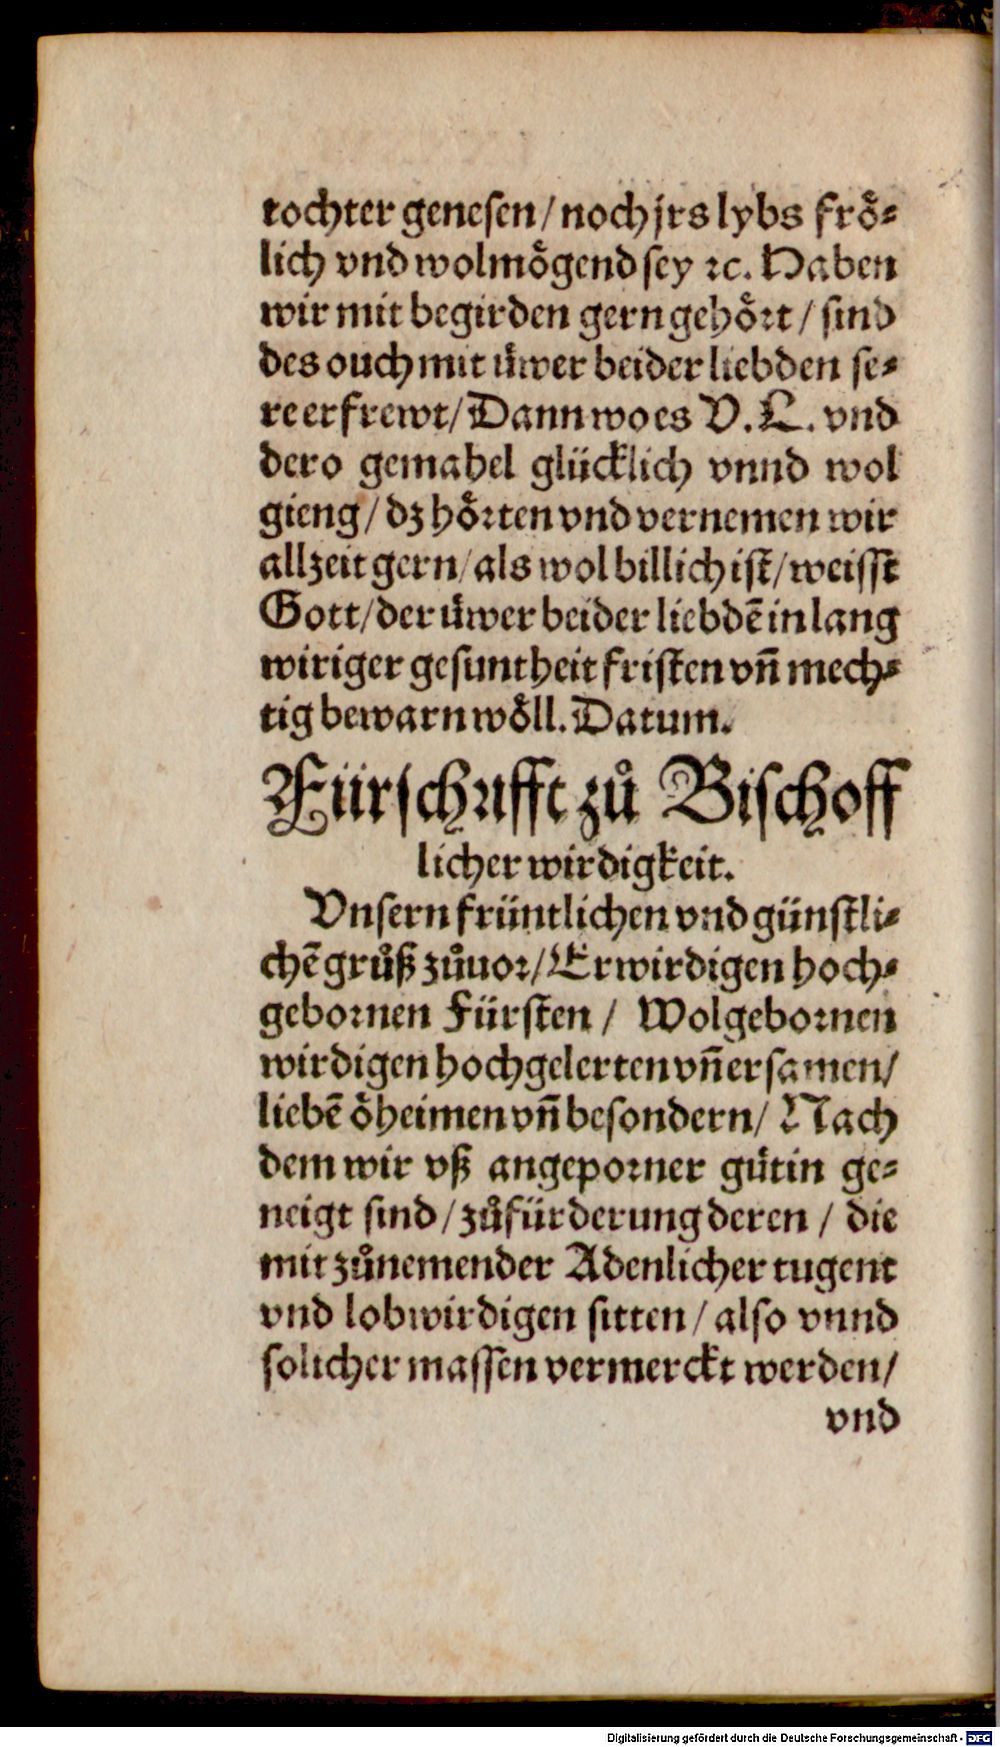 tochter genesen / noch jrs lybs frö⸗
lich vnd wolmögend sey ꝛc. Haben
wir mit begirden gern gehört / sind
des ouch mit üwer beider liebden se⸗
re erfrewt / Dann wo es V. L. vnd
dero gemahel glücklich vnnd wol
gieng / dz hörten vnd vernemen wir
allzeit gern / als wol billich ist / weisst
Gott / der üwer beider liebdē in lang
wiriger gesuntheit fristen vñ mech⸗
tig bewarn wöll. Datum.
Fürschrifft zů Bischoff
licher wirdigkeit.
Vnsern früntlichen vnd günstli⸗
chē grůß zůuor / Erwirdigen hoch⸗
gebornen Fürsten / Wolgebornen
wirdigen hochgelerten vñ ersamen /
liebē öheimen vñ besondern / Nach
dem wir vß angeporner gütin ge⸗
neigt sind / zůfürderung deren / die
mit zůnemender Adenlicher tugent
vnd lobwirdigen sitten / also vnnd
solicher massen vermerckt werden /
vnd
Digitalisierung gefördert durch die Deutsche Forschungsgemeinschaft - DFG